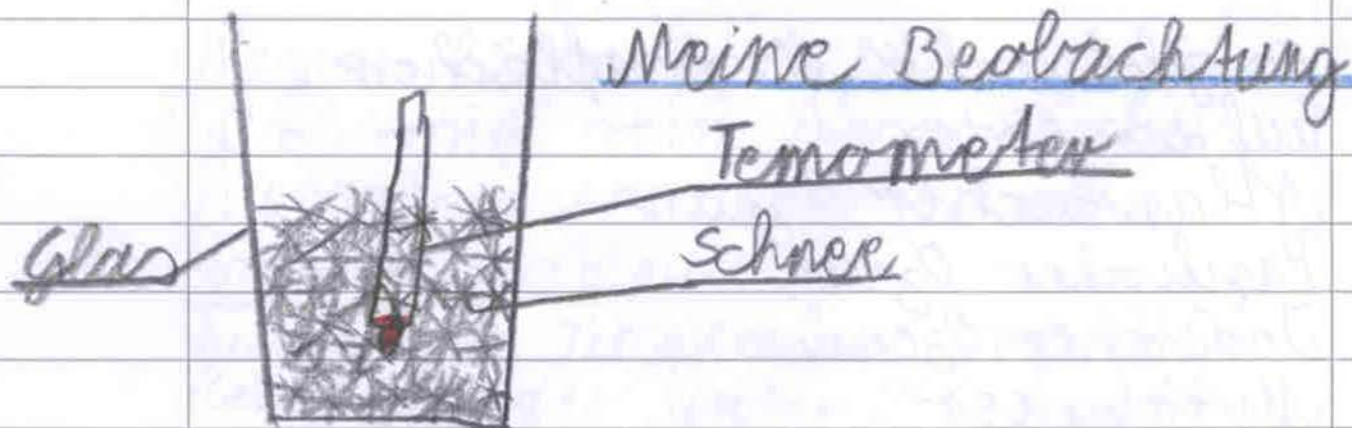 Meine Beobachtung
Temometer
Schnee
Glas